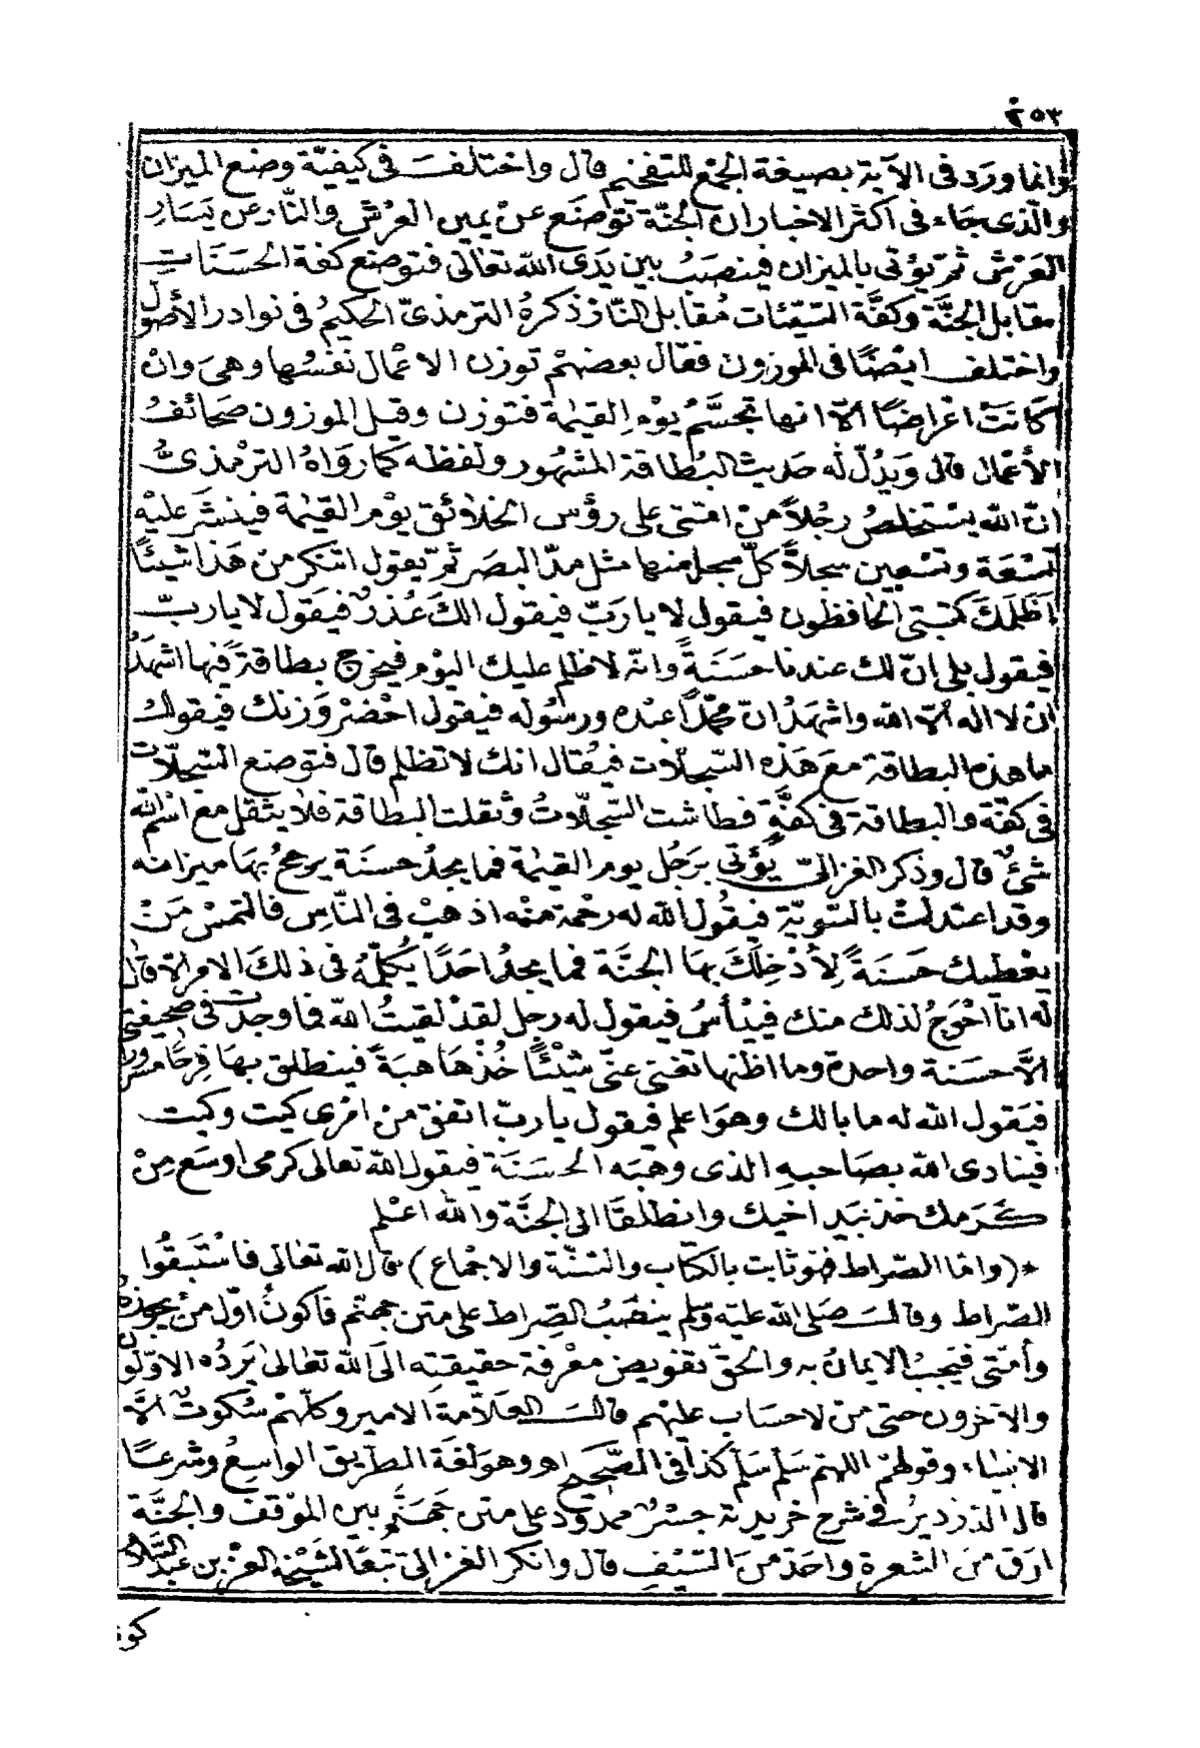 ٢٥٣
وانما ورد فى الآية بصيغة الجمع للتفخيم قال واختلف فى كيفيّة وضع الميزان
والّذى جاء فى اكثر الاخبار ان الجنّة توضع عن يمين العرش والنّار عن يسار
العرش ثمّ يؤتى بالميزان فينصب بين يدى الله تعالى فتوضع كفة الحسنات
مقابل الجنَّة وكفَّة السّيّئات مُقابل النّار ذكرهُ الترمذىّ الحكيمُ فى نوادر الأصول
واختلف ايضًا فى الموزون فقال بعضهمْ توزن الاعْمال نفسُها وهى وانْ
كانت اعْراضًا الاّ انها تجسَّمُ يوْم القيٰمة فتوزن وقيل الموزون صحائفُ
الأعْمال قال ويدُلّ له حديث البُطاقة المشهُور ولفظه كما رواهُ الترْمذىُّ
انّ الله يسْتخلصُ رجُلاً منْ امّتى على رؤس الخلائق يوْم القيٰمة فينشر عليْه
تسْعَة وتسْعين سجلاًّ كلّ سجل منها مثل مدّ البصَر ثمّ يقول اتنكر من هَذا شيئًا
اَظلمَكَ كتبتى الحافظون فيقول لا ياربّ فيقول الكَ عُذرٌ فيقول لا ياربّ
فيقول بلى انّ لك عندنا حسَنَةً وانّه لا ظلم عليك اليوْم فيخرج بطاقة فيها اشهدُ
ان لا اله الاّ الله واشهَدُ انّ محمّدًا عبْده ورسُوله فيقول احْضرْ وَزنك فيقول
ما هذه البطاقة معَ هَذه السّجلاّت فيُقال انك لا تظلم قال فتوضع السّجلاّت
فى كفّة والبطاقة فى كفَّةٍ فطاشت السّجلاّتُ وثقلت البطاقة فلا يثقل مع اسْم الله
شئٌ قال وذكر الغزالىّ يُؤتى برَجُل يوم القيٰمة فما يجدُ حسنَة يرجحُ بهَا ميزانه
وقد اعتدلتْ بالسّويّة فيقُول الله له رحْمة منْه اذهبْ فى النّاس فالتمسْ مَنْ
يعْطيك حسَنَةً لأدْخِلَكَ بهَا الجنَّة فما يجدُ احَدًا يُكلّمُهُ فى ذلكَ الامر الاّ قال
له انا احْوَجُ لذلك منك فييْأسُ فيقول له رجل لقدْ لقيتُ الله فما وجدت فى صحيفتى
الاَّ حسَنة واحدة وما اظنها تغنى عنّى شيْئًا خُذْهَا هبَةً فينطلق بهَا فرِحًا مسرورًا
فيَقول الله له ما بالك وهوَ اعلم فيقول ياربّ اتفق من امْرى كيت وكيت
فينادى الله بصَاحبهِ الذى وهبَه الحسَنَة فيقول الله تعالى كرمى اوسَع مِنْ
كَرَمك خذ بيَد اخيك وانطلقَا الى الجنَّة والله اعْلم
*(وامّا الصّراط فهو ثابت بالكتاب والسّنّة والاجماع) قال الله تعالى فاسْتَبقُوا
الصّراط وقال صَلى الله عليْه وَسلم ينصَبُ الصّراط على متن جهنّم فاكونُ اوّل منْ يجوزه
وأمّتى فيَجبُ الايمانُ به والحقّ تفويض معْرفة حقيقتِه الى الله تعالىٰ يَرِدُه الاوّلون
والآخرون حتى من لا حسَاب عليْهم قال العَلاّمة الامير وكلّهمْ سُكوتٌ الاَّ
الانبياء وقولهمْ اللهمّ سَلم سَلم كذا فى الصّحيح اهـ وهو لغة الطّريق الواسعُ وشرعًا
قال الدّرديرُ فى شرح خريدته جسْرٌ ممدُود على متن جَهنّم بين الموْقف والجنَّة
ارَق من الشعرة واحَدّ منَ السّيْفِ قال وانكر الغزالىّ تبعًا لشيْخه العز بن عبد السّلام
كونه